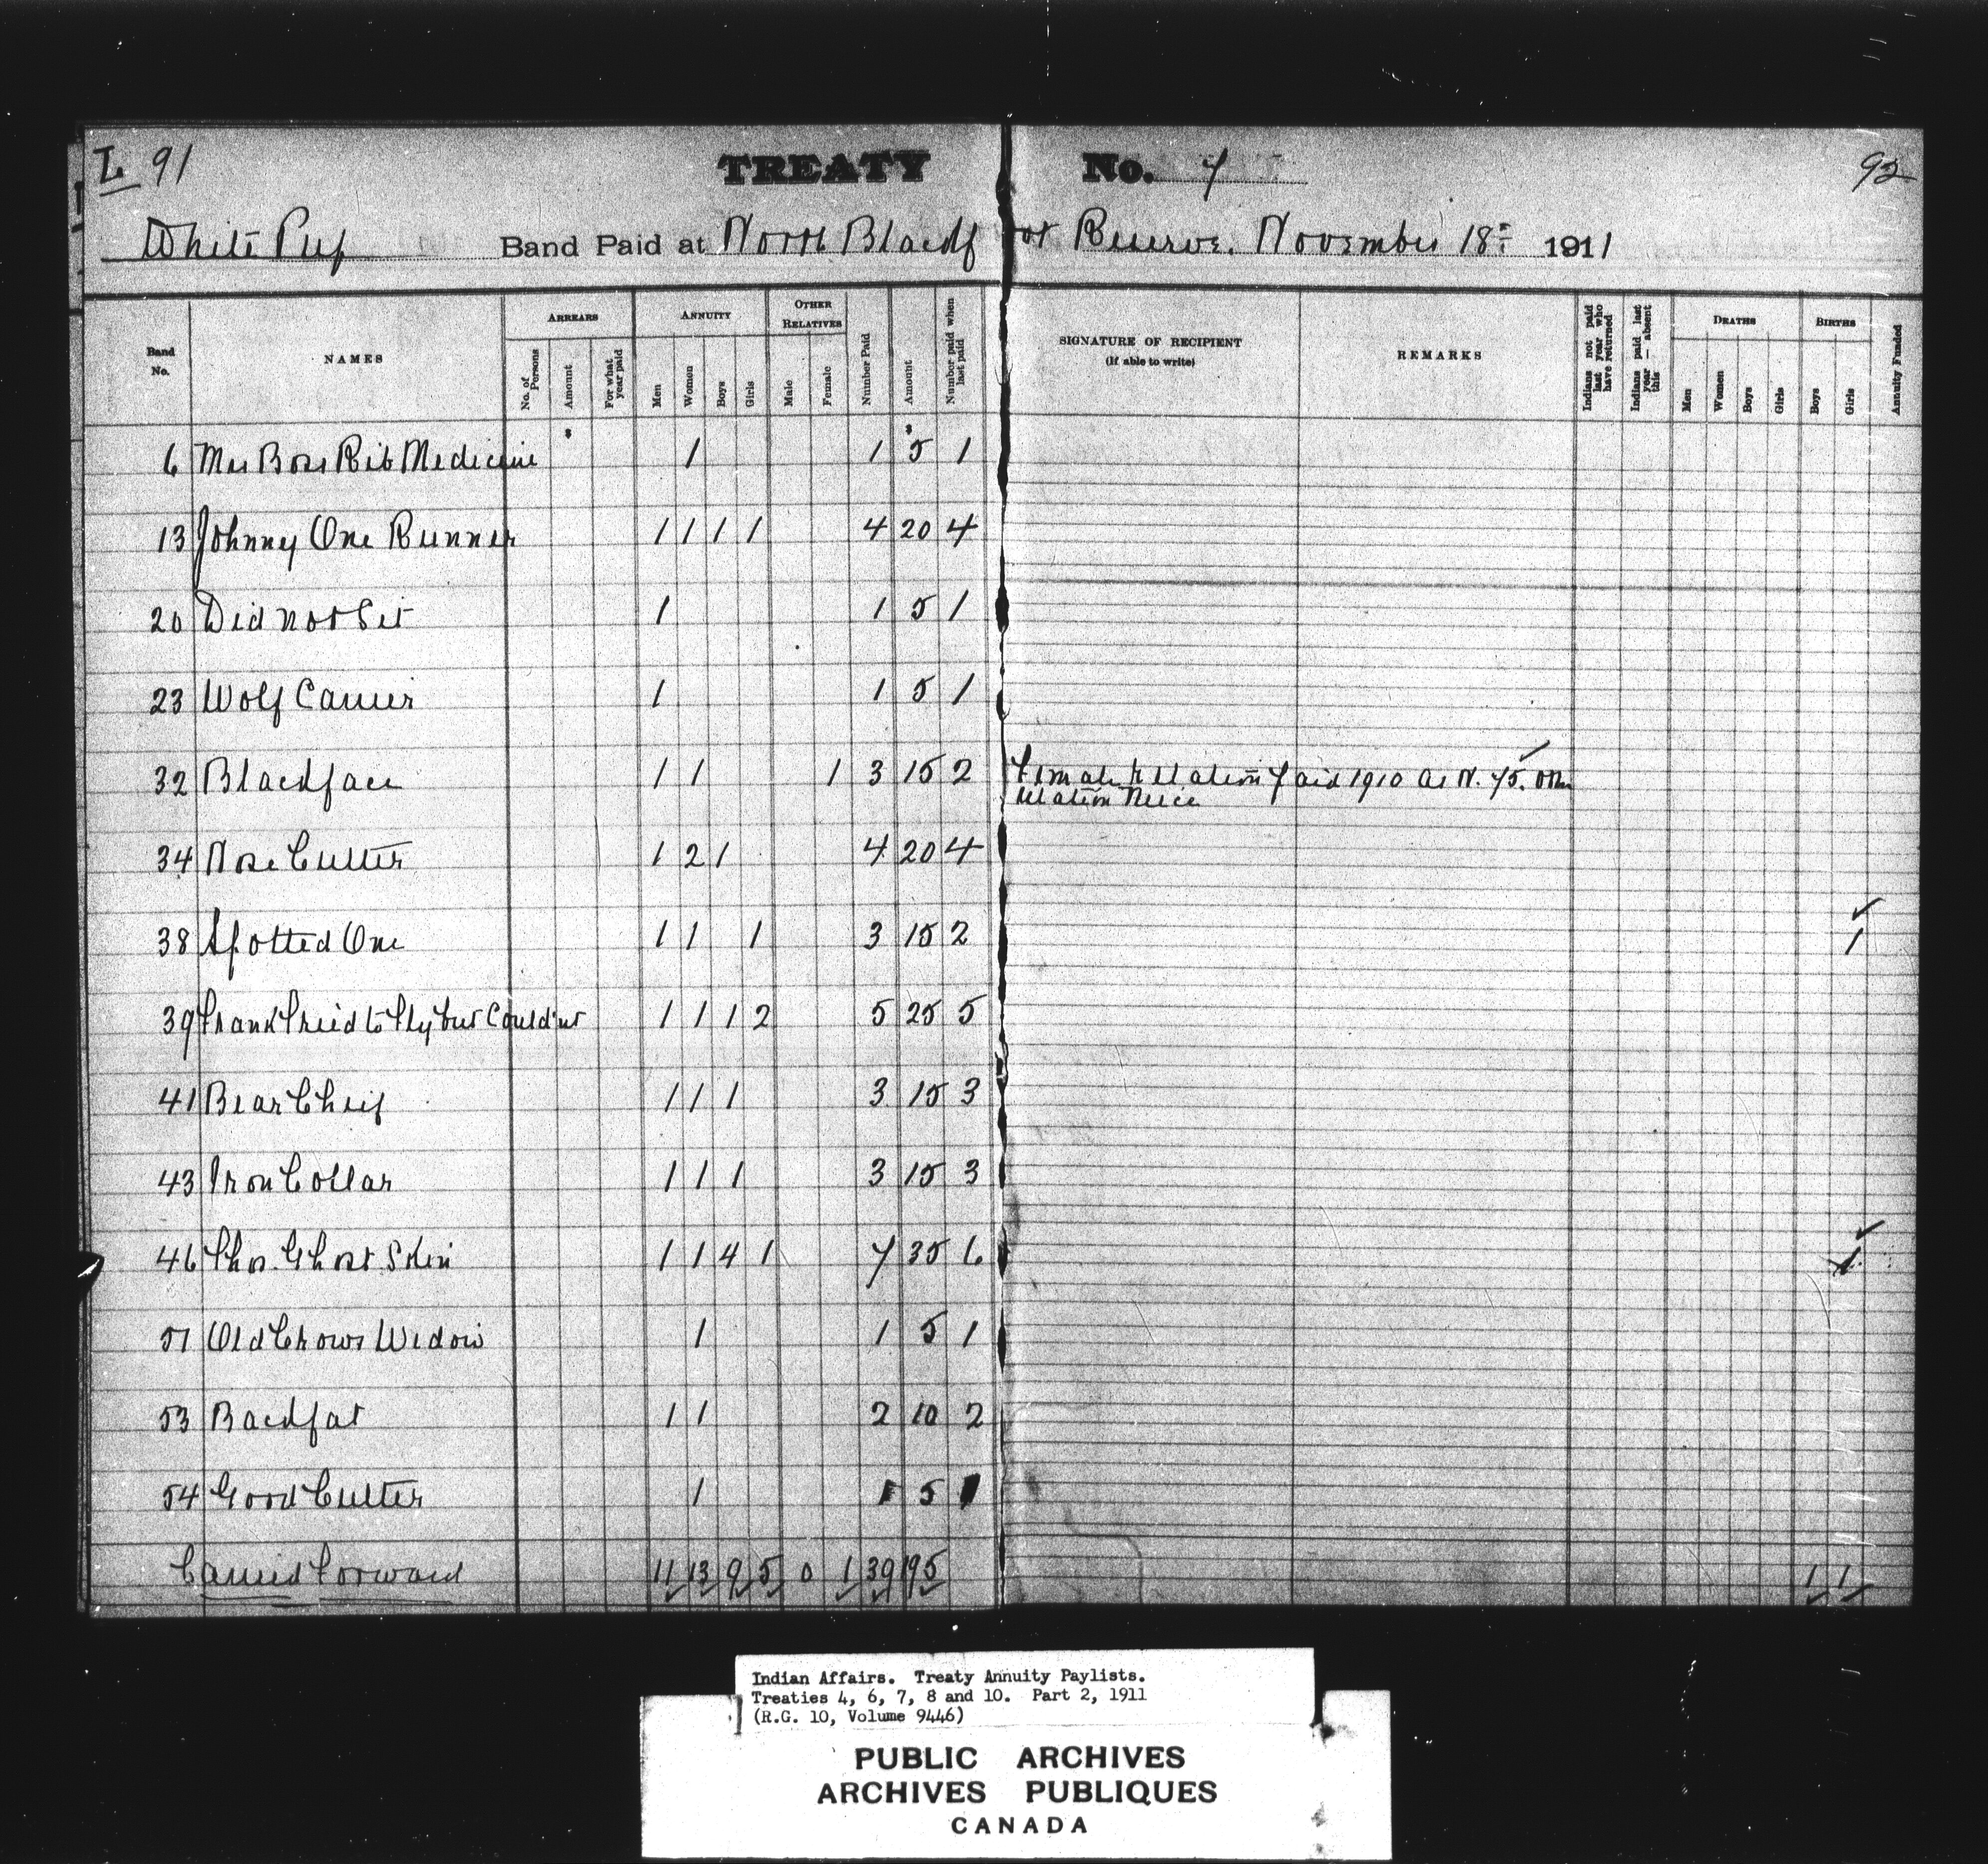 L 91 TREATY No. 7 92
White Pup Band Paid at North Blackfoot Reserve. November 18th 1911
Band No. NAMES ARREARS No. of Persons Amount For what year paid ANNUITY Men Women Boys Girls OTHER RELATIVES Male Female Number Paid Amount Number paid when last paid SIGNATURE OF RECIPIENT (if able to write) REMARKS Indians not paid last year who have returned Indians paid last year — absent this DEATHS Men Women Boys Girls BIRTHS Boys Girls Annuity Funded
$ $
6 Mrs Boss Rib Medicine 1 1 5 1
13 Johnny One Runner 1 1 1 1 4 20 4
20 Did not Set 1 1 5 1
23 Wolf Carrier 1 1 5 1
32 Blackface 1 1 1 3 15 2 Female Relation paid 1910 as N. 75. Other
Relation Neice
34 Nose Cutter 1 2 1 4 20 4
38 Spotted One 1 1 1 3 15 2 1
39 Frank Tried to Fly but Could'nt 1 1 1 2 5 25 5
41 Bear Cheif 1 1 1 3 15 3
43 Iron Collar 1 1 1 3 15 3
46 Thos. Ghost Skin 1 1 4 1 7 35 6 1
51 Old Crows Widow 1 1 5 1
53 Backfat 1 1 2 10 2
54 Good Cutter 1 1 5 1
Carried Forward 11 13 9 5 0 1 39 195 1 1
Indian Affairs. Treaty Annuity Paylists.
Treaties 4, 6, 7, 8 and 10. Part 2, 1911
(R.G. 10, Volume 9446)
PUBLIC ARCHIVES
ARCHIVES PUBLIQUES
CANADA